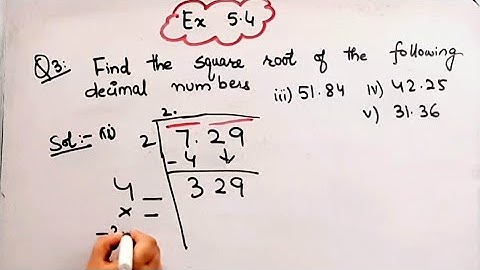 Ex 5.4
Q3: Find the square root of the following
decimal numbers iii) 51.84 iv) 42.25
v) 31.36
Sol:- (ii)
2.
2 7.29
- 4 ↓
4 _ 3 29
x =